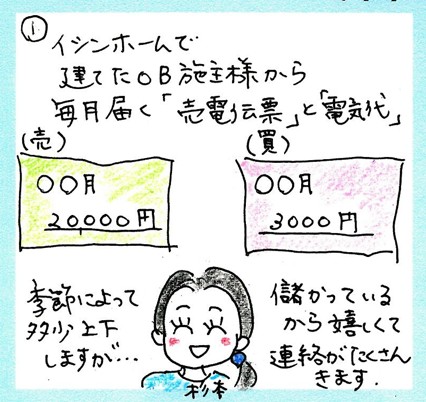 ①
イシンホームで
建てたOB施主様から
毎月届く「売電伝票」と「電気代」
(売)
○○月
20,000円
(買)
○○月
3000円
季節によって
多少上下
しますが…
儲かっている
から嬉しくて
連絡がたくさん
きます.
杉本